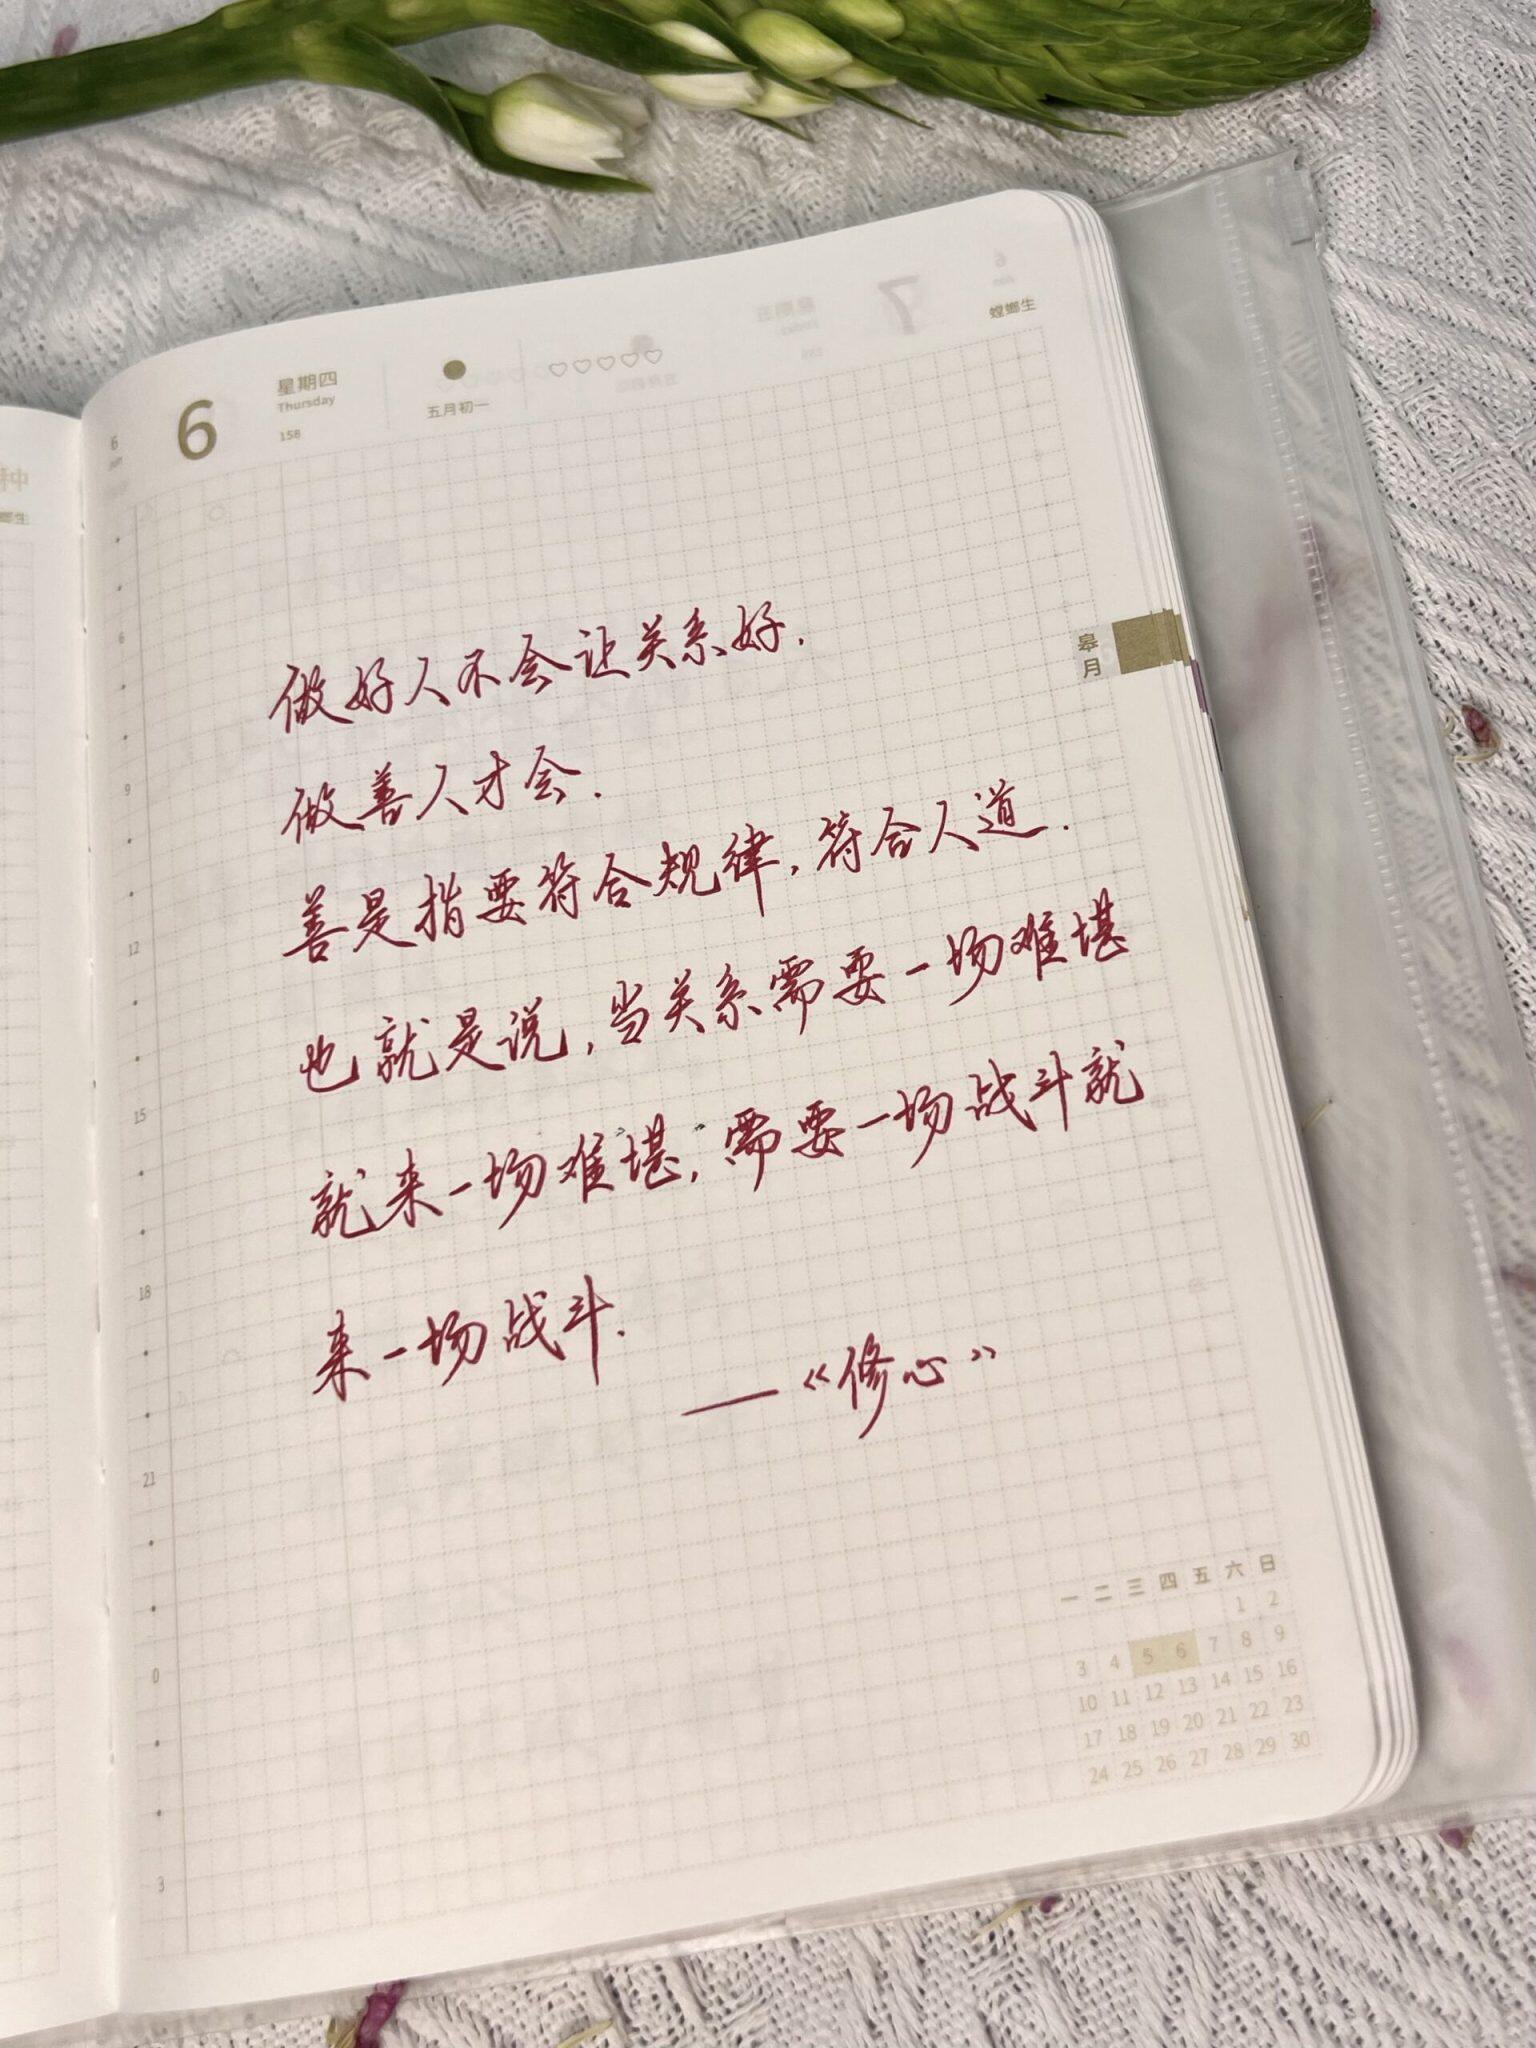 6
Jun
6
星期四
Thursday
158
五月初一
螳螂生
种
螂生
皋月
做好人不会让关系好.
做善人才会.
善是指要符合规律,符合人道.
也就是说,当关系需要一场难堪
就来一场难堪,需要一场战斗就
来一场战斗.
——《修心》
6
9
12
15
18
21
0
3
一 二 三 四 五 六 日
1 2
3 4 5 6 7 8 9
10 11 12 13 14 15 16
17 18 19 20 21 22 23
24 25 26 27 28 29 30